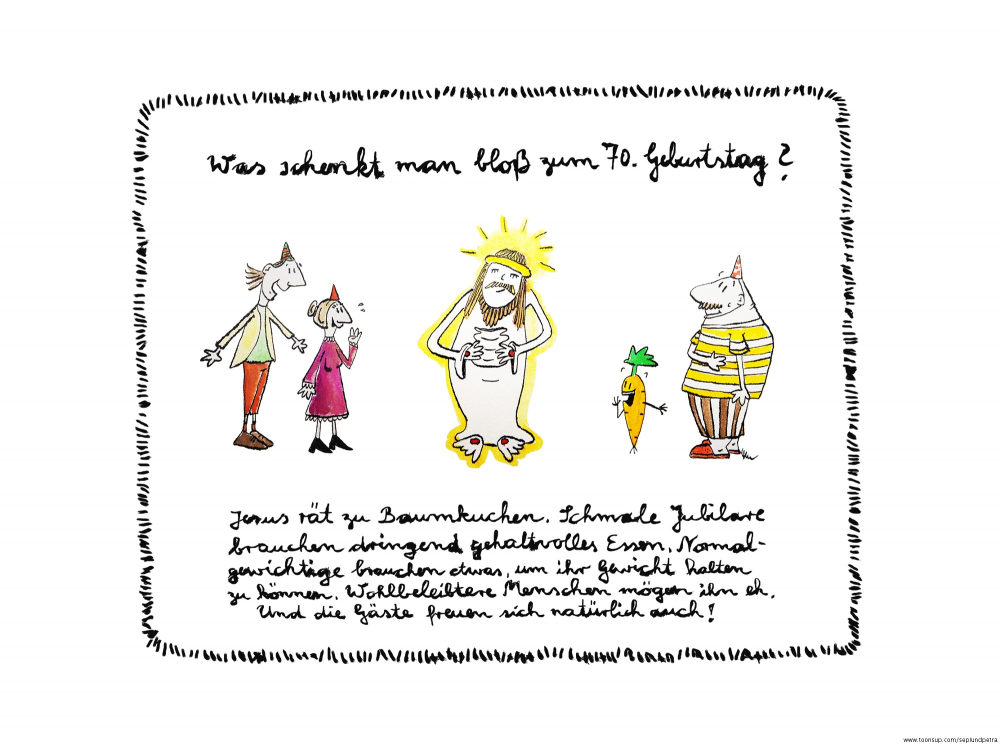 Was schenkt man bloß zum 70. Geburtstag?
Jesus rät zu Baumkuchen. Schmale Jubilare
brauchen dringend gehaltvolles Essen. Normal-
gewichtige brauchen etwas, um ihr Gewicht halten
zu können. Wohlbeleibtere Menschen mögen ihn eh.
Und die Gäste freuen sich natürlich auch!
www.toonsup.com/seplundpetra